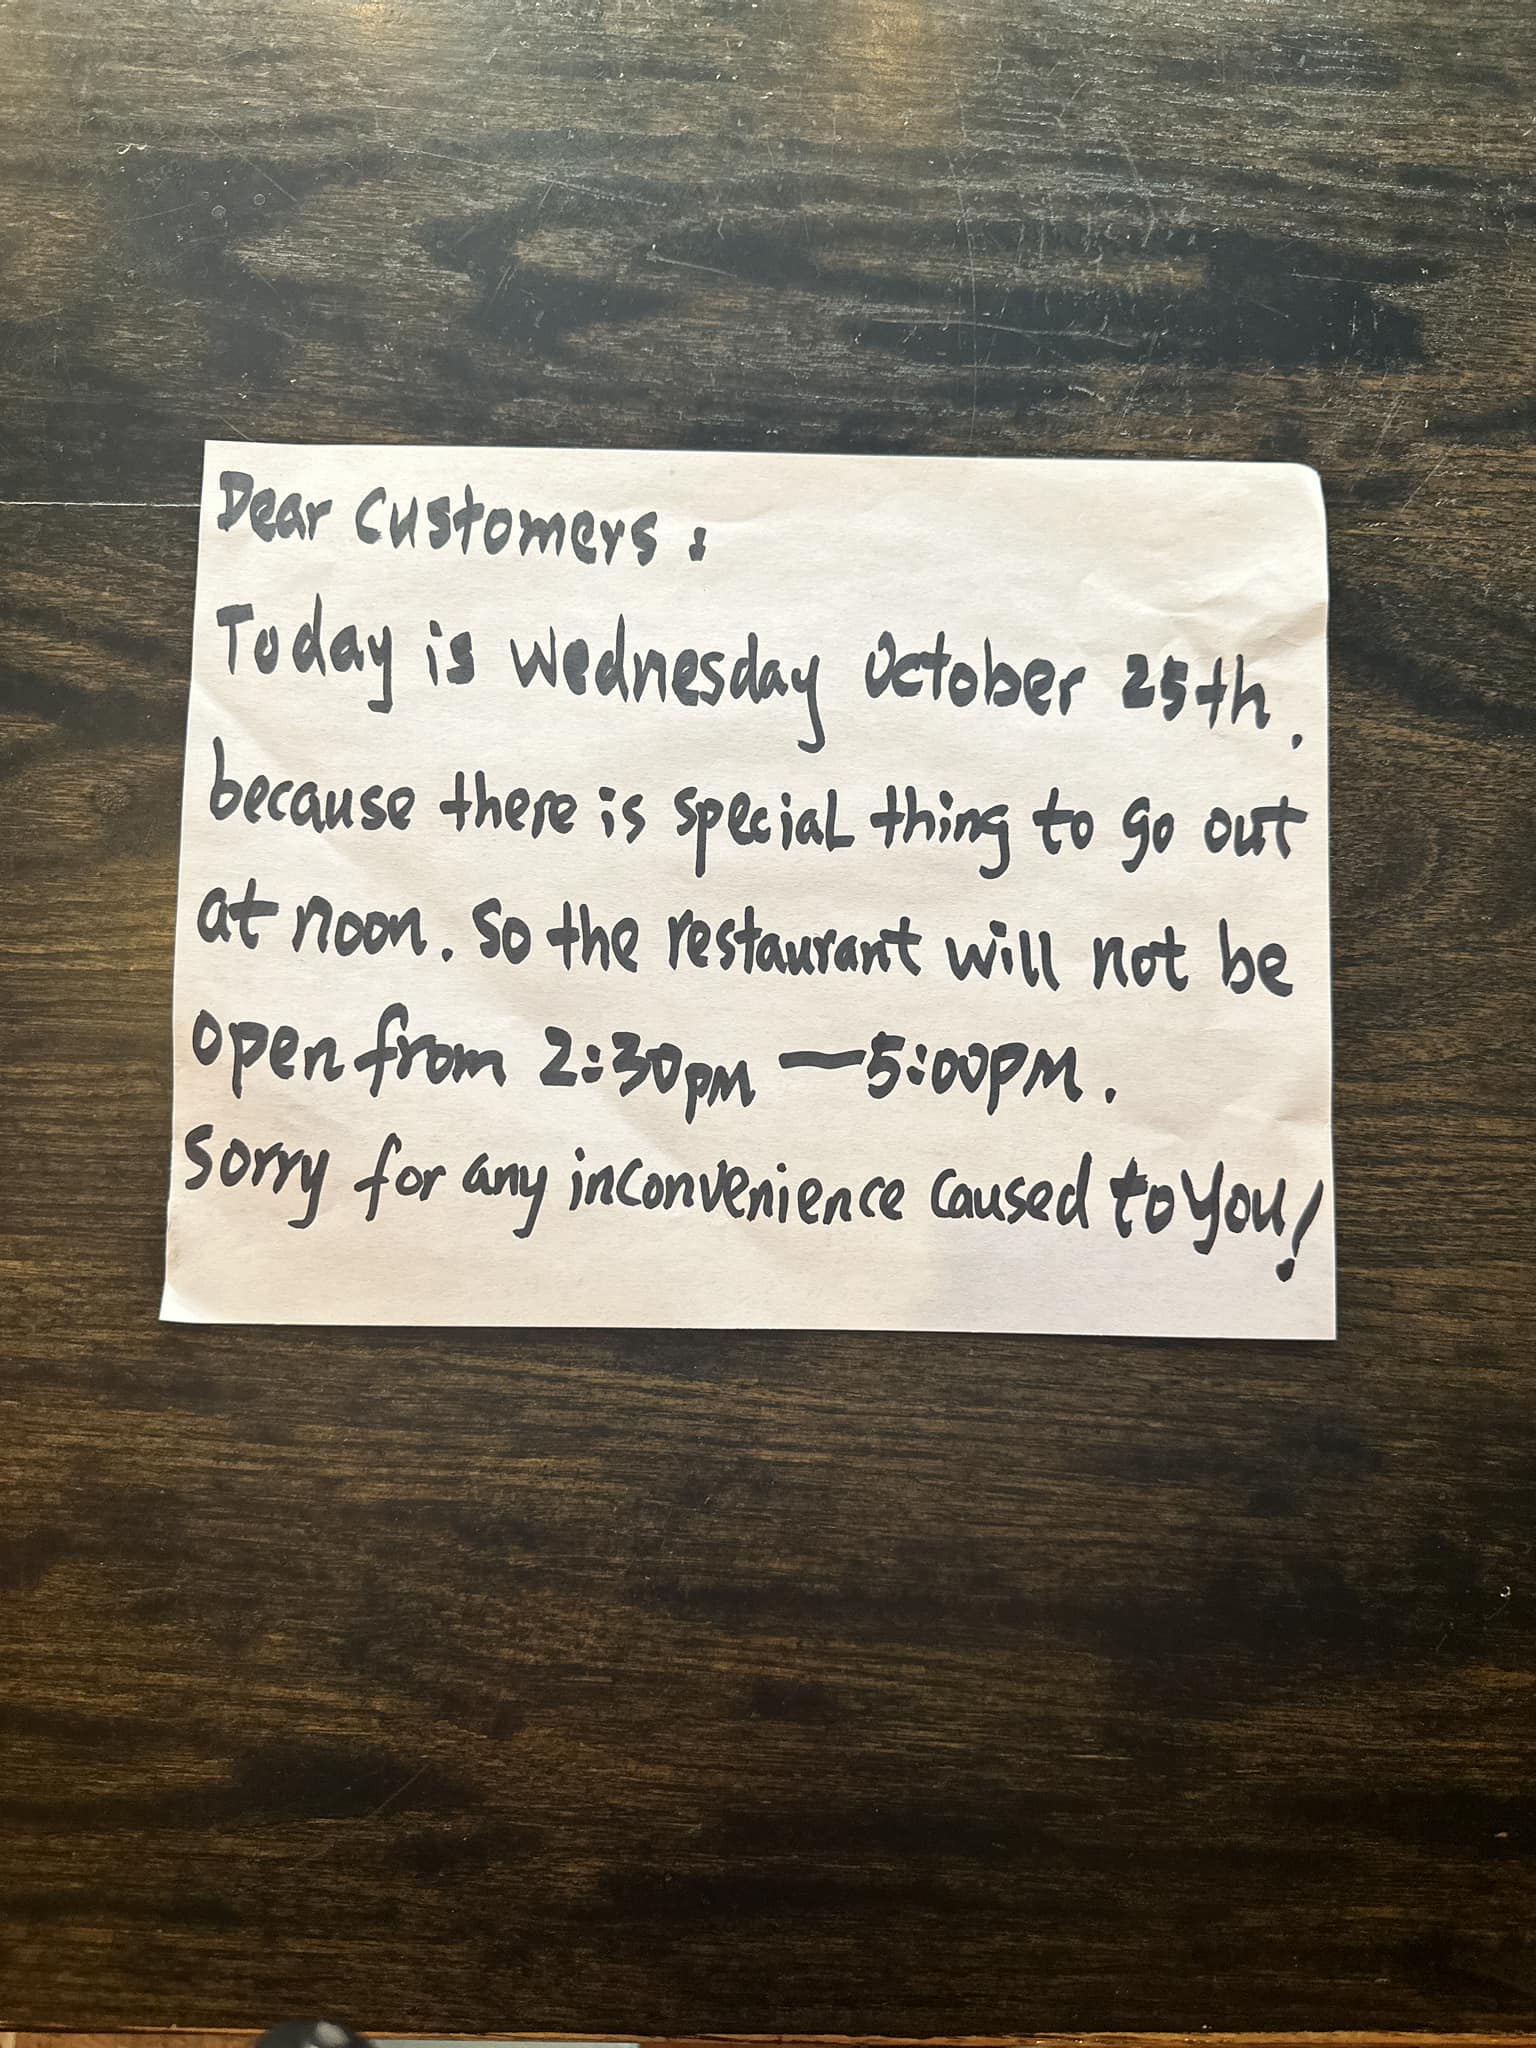 Dear Customers:
Today is Wednesday October 25th.
because there is special thing to go out
at noon. So the restaurant will not be
open from 2:30pm — 5:00pm.
Sorry for any inconvenience caused to you!